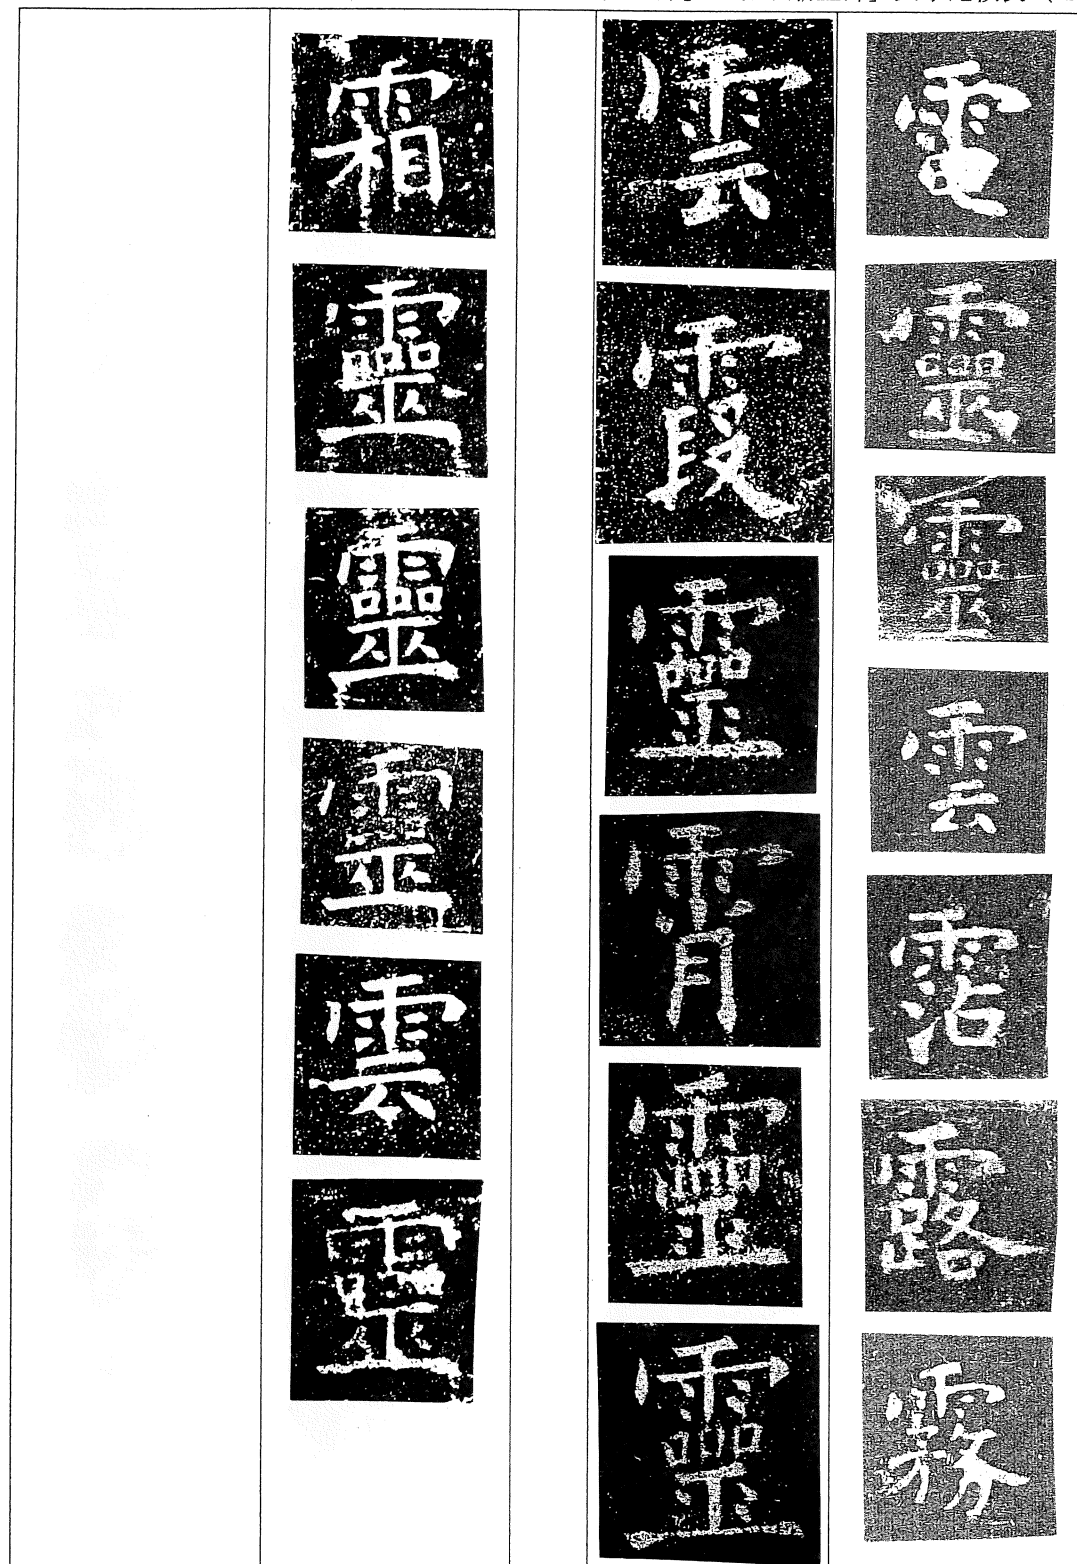 電靈靈雲霑露霧
雲霞靈霄靈靈
霜靈靈靈雲靈